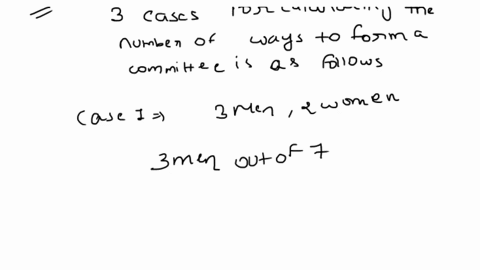 3 cases for calculating the
number of ways to form a
committee is as follows
Case I ⇒ 3 Men, 2 women
3 men out of 7